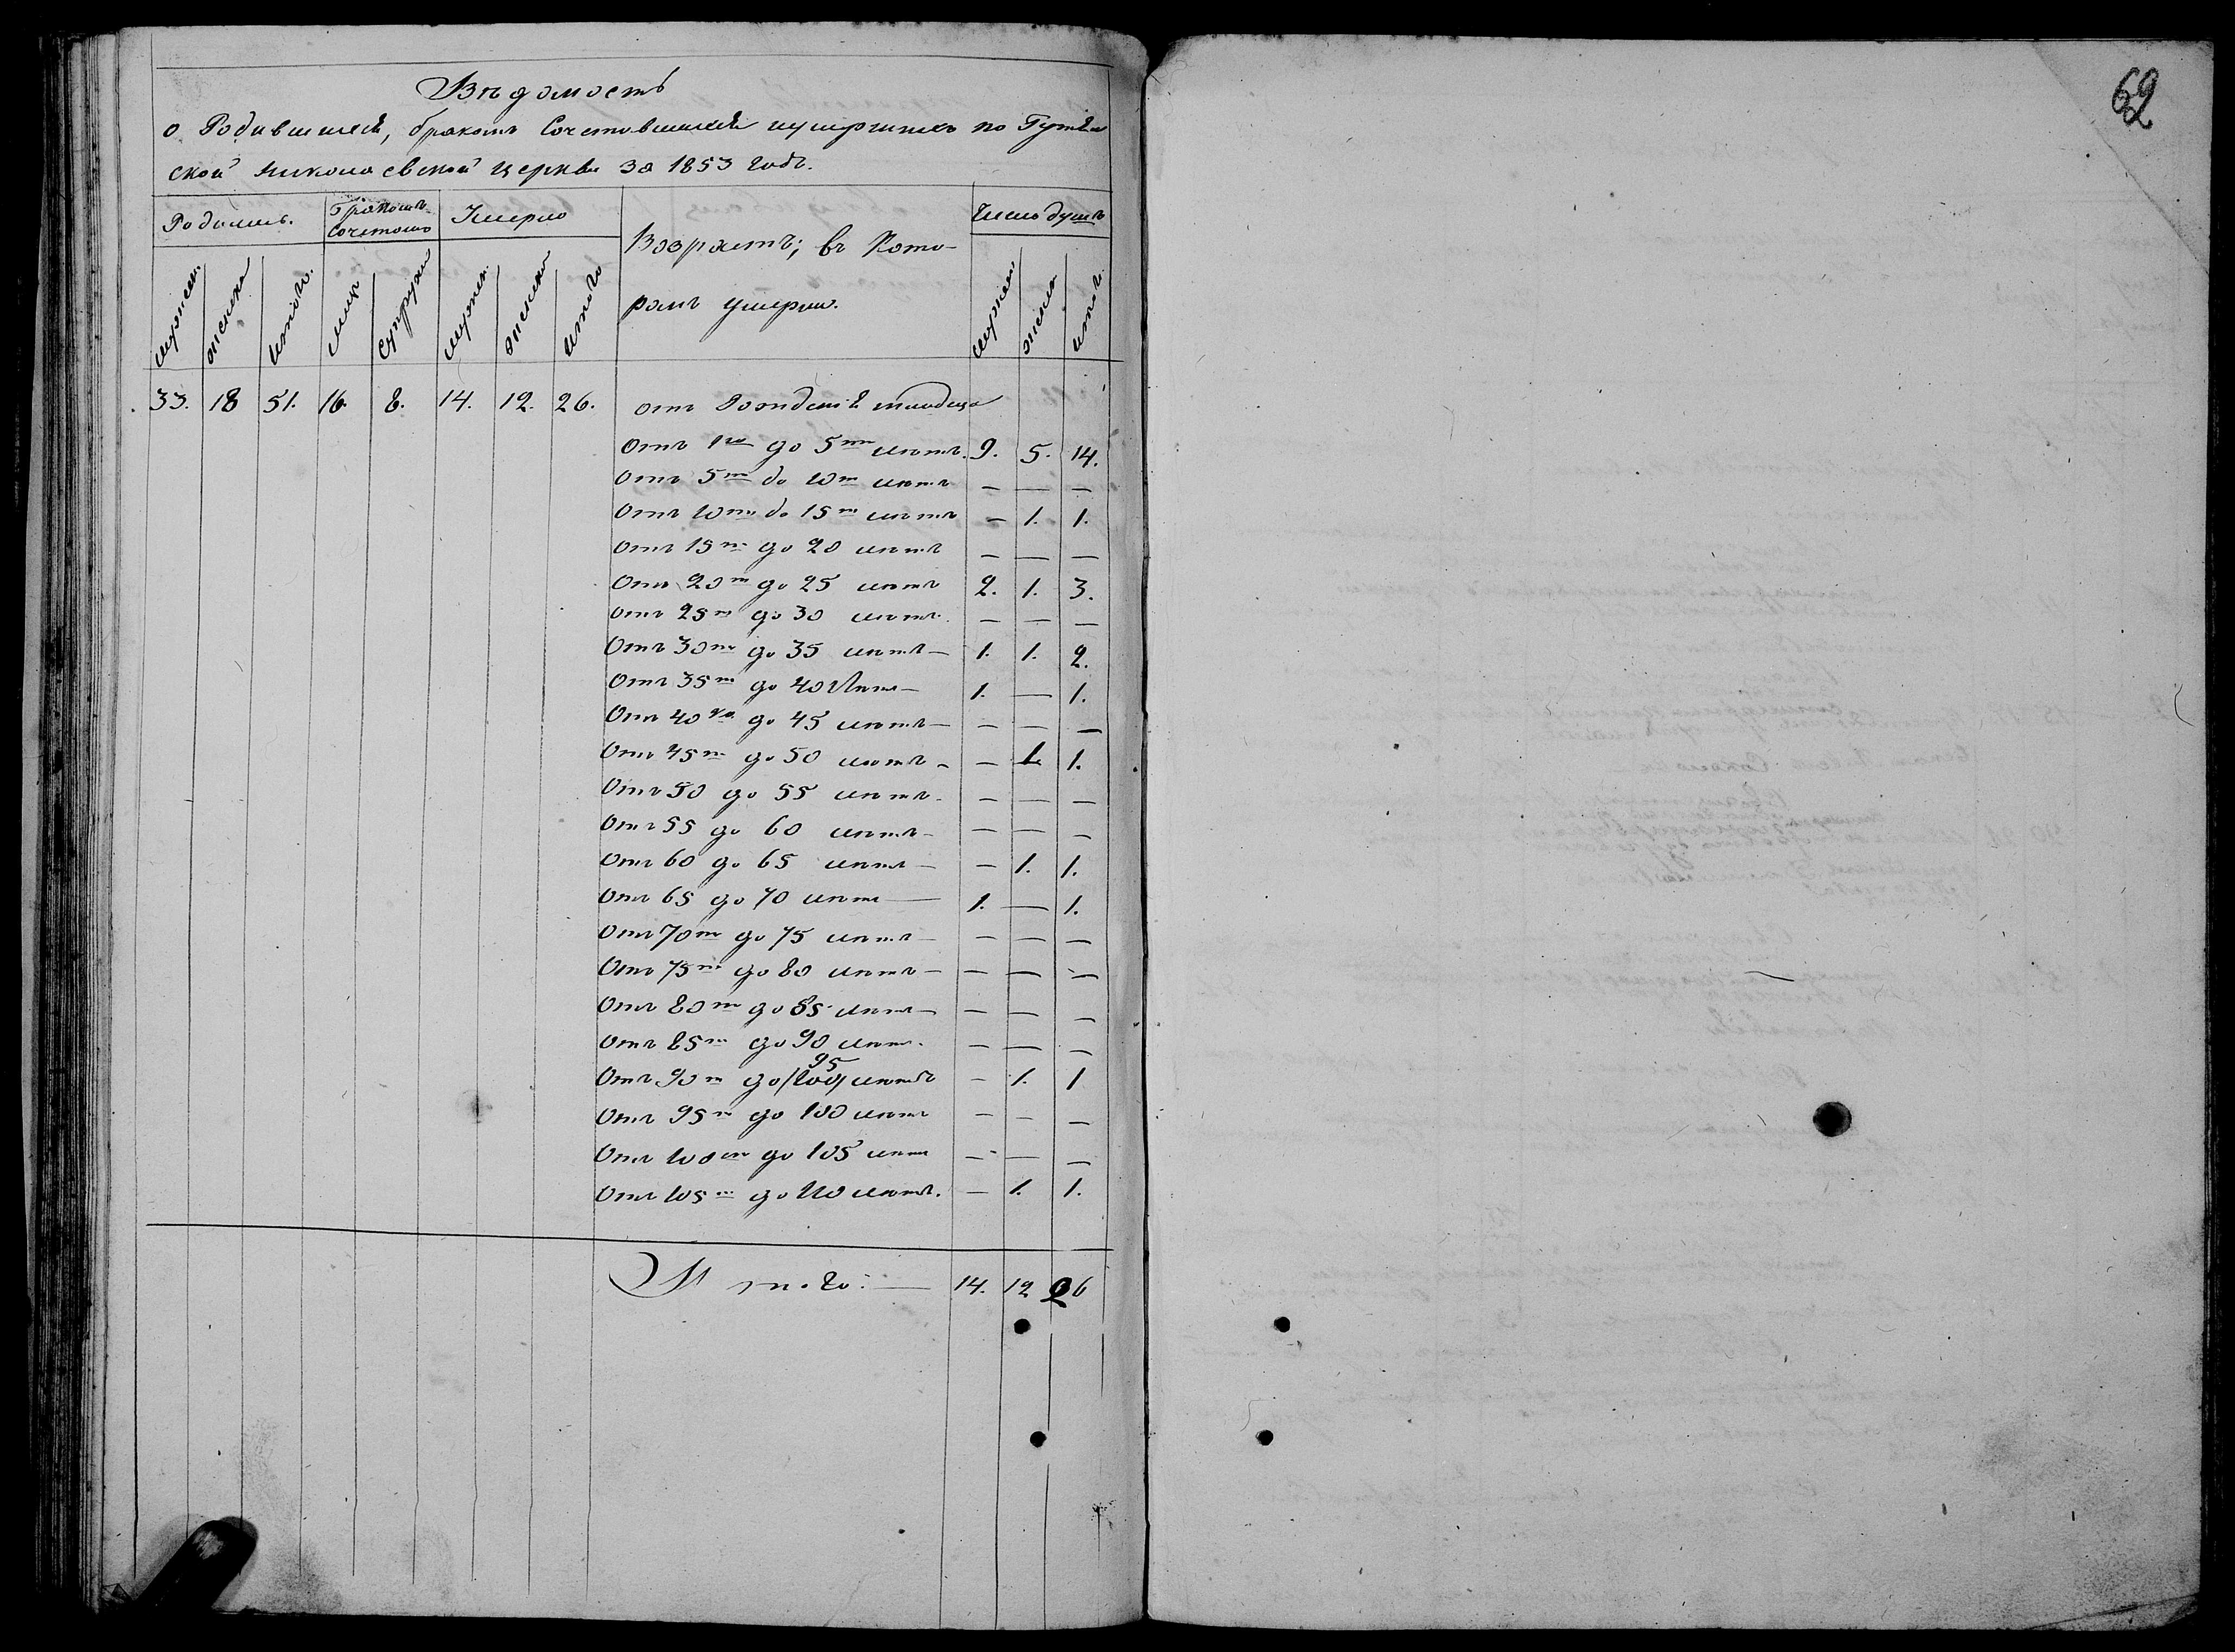 Вѣдомость
о Родившихся, бракомъ Сочетавшихся и умершихъ по
ской Николаевской церкви за 1853 годъ.
Родилось. Бракомъ Сочеталось Умерло Возрастъ; въ Кото- Число душъ
ромъ умерли.
мужеска женска итого. лицъ супружи мужеск. женска итого мужеска женска итого.
33. 18 51. 16. 8. 14. 12. 26. отъ Рождения младенца
Отъ 1го до 5ти лѣтъ. 9. 5. 14.
Отъ 5ти до 10ти лѣтъ — — —
Отъ 10ти до 15ти лѣтъ — 1. 1.
Отъ 15ти до 20 лѣтъ — — —
Отъ 20ти до 25 лѣтъ 2. 1. 3.
Отъ 25ти до 30 лѣтъ. — — —
Отъ 30ти до 35 лѣтъ — 1. 1. 2.
Отъ 35ти до 40 Лѣтъ — 1. — 1.
Отъ 40ка до 45 лѣтъ — — — —
Отъ 45ти до 50 лѣтъ — — 1. 1.
Отъ 50 до 55 лѣтъ — — — —
Отъ 55 до 60 лѣтъ — — — —
Отъ 60 до 65 лѣтъ — — 1. 1.
Отъ 65 до 70 лѣтъ — 1. — 1.
Отъ 70ти до 75 лѣтъ — — — —
Отъ 75ти до 80 лѣтъ — — — —
Отъ 80ти до 85 лѣтъ — — — —
Отъ 85ти до 90 лѣтъ. — — —
95
Отъ 90ти до (100) лѣтъ — 1. 1
Отъ 95ти до 100 лѣтъ — — —
Отъ 100та до 105 лѣтъ — — —
Отъ 105ти до 110 лѣтъ. — 1. 1.
Итого: — 14. 12 26
62